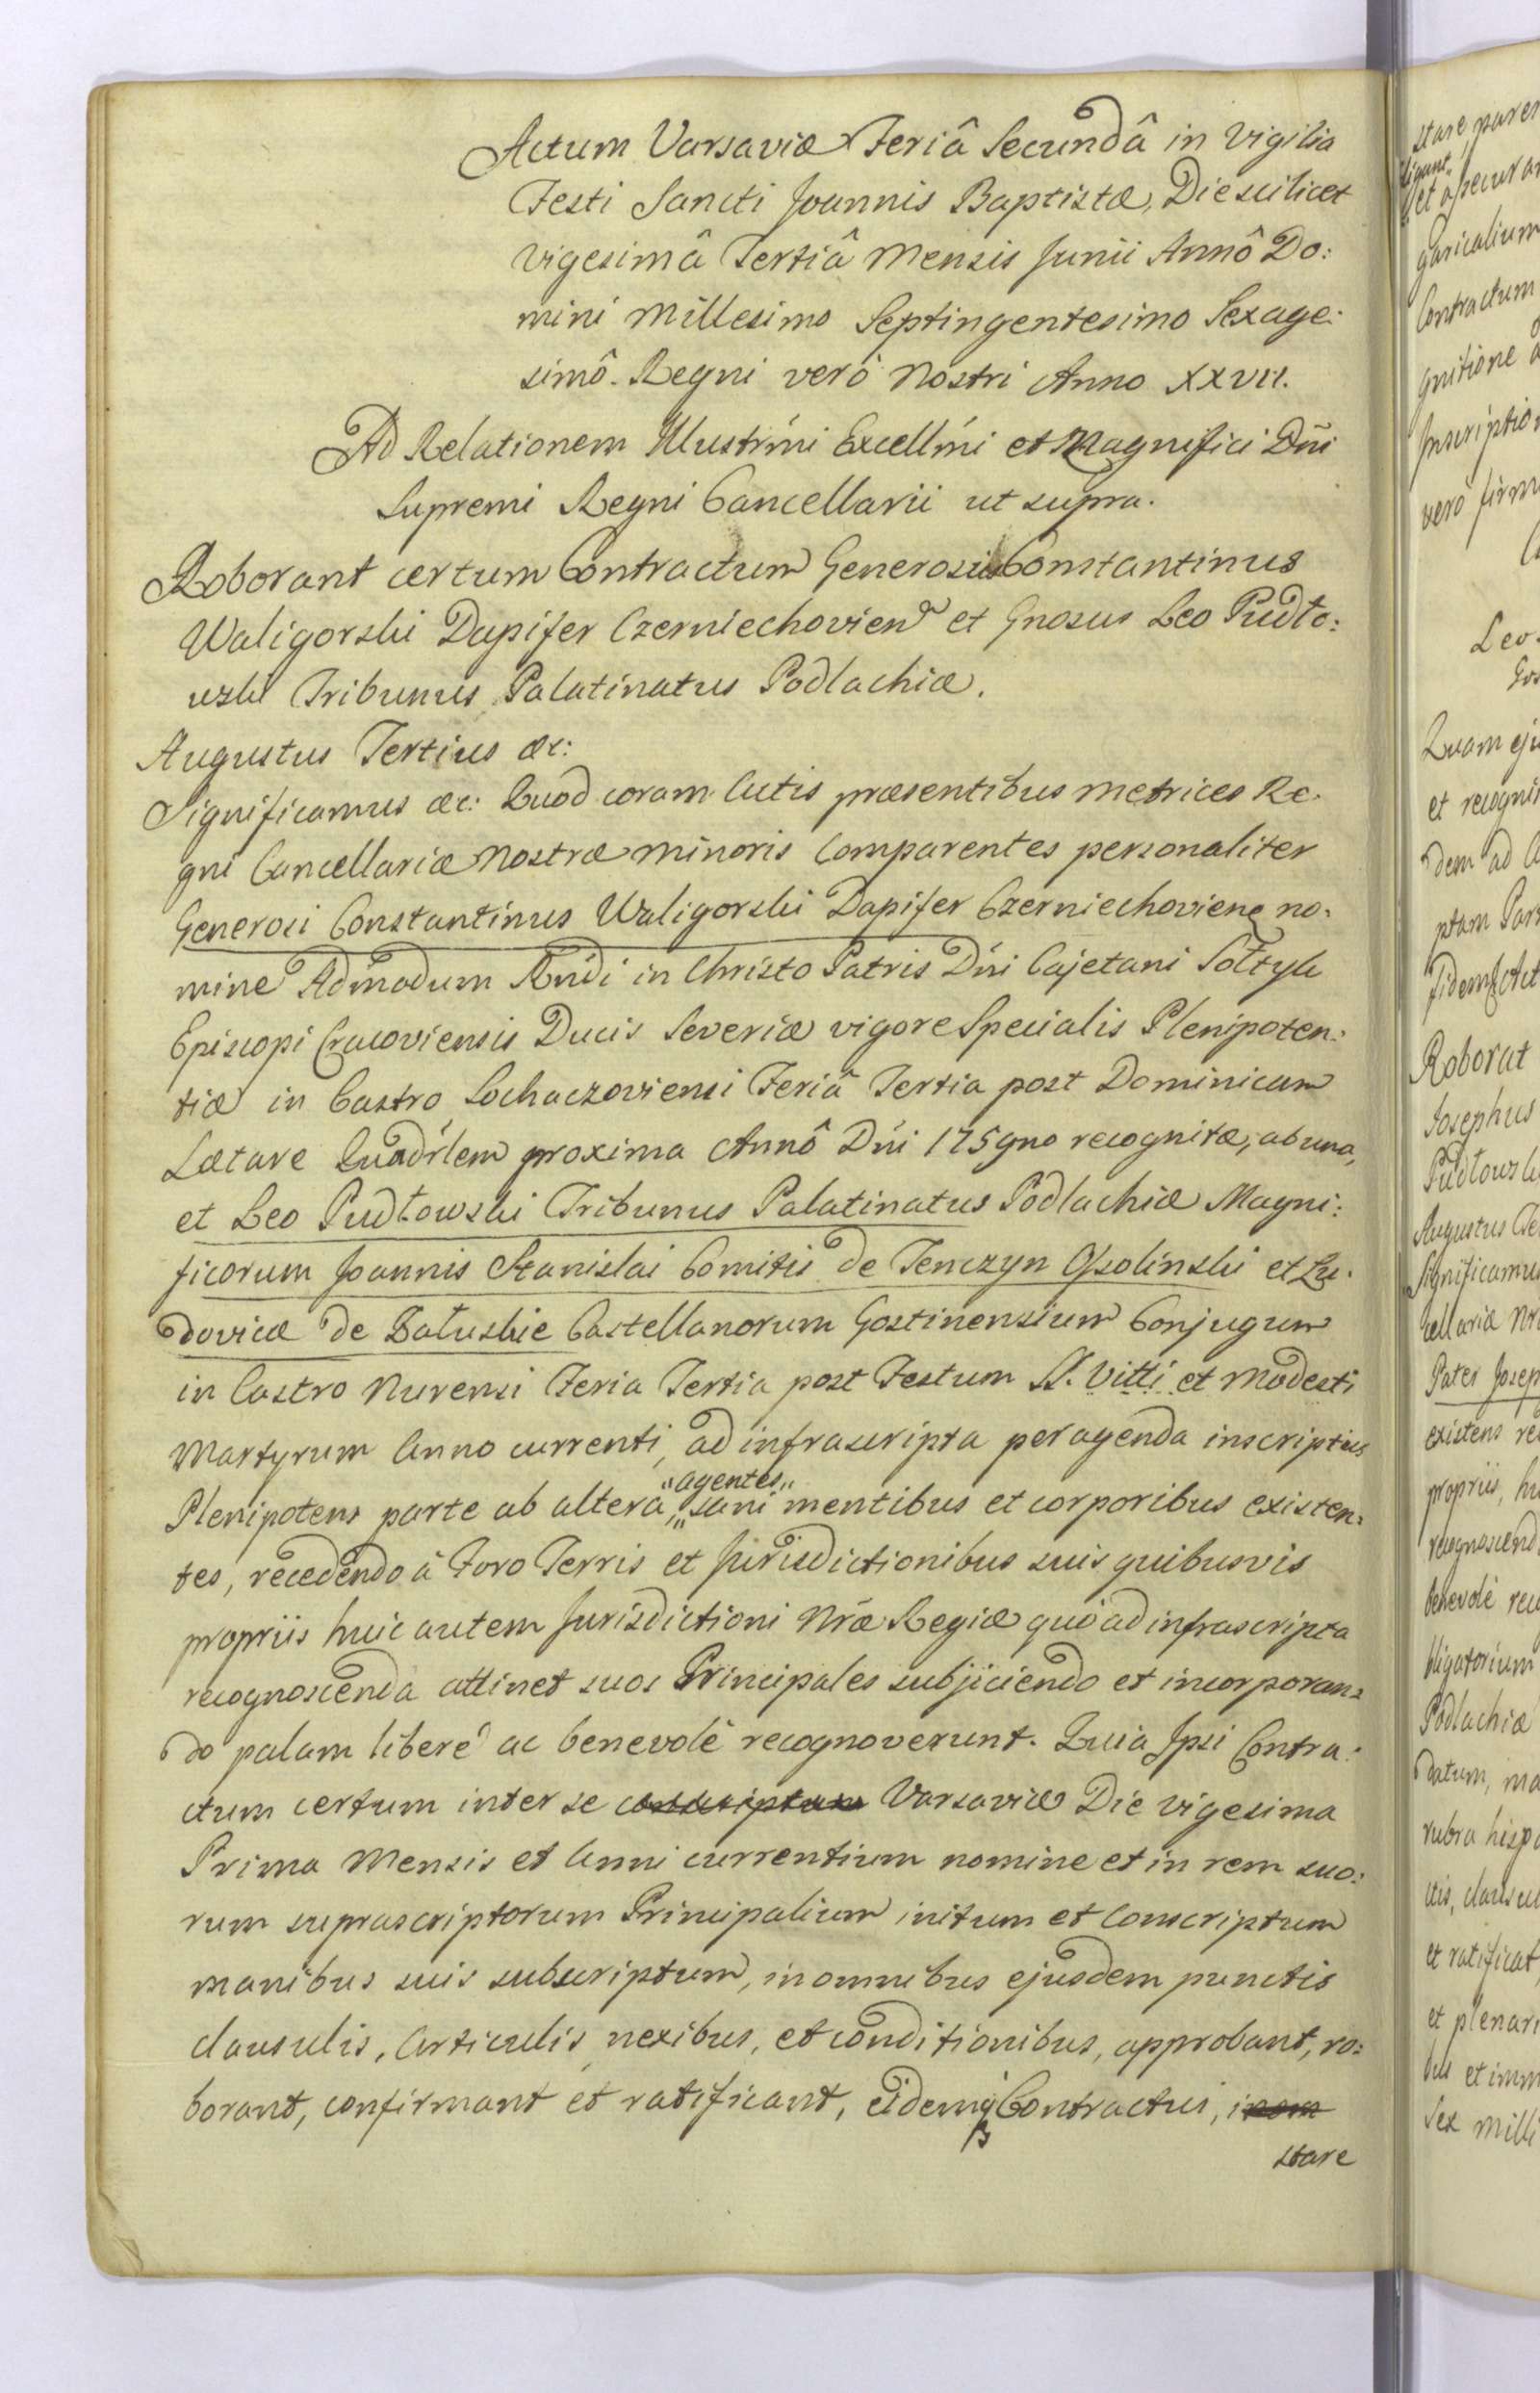 Actum Varsaviæ Feriâ Secundâ in Vigilia
Festi Sancti Joannis Baptistæ, Die scilicet
Vigesimâ Tertiâ Mensis Junii Annô Do:
mini Millesimo Septingentesimo Sexage:
simô. Regni verò Nostri Anno XXVII.
Ad Relationem Illustrm̃i Excellm̃i et Magnifici Dñi
Supremi Regni Cancellarii ut supra.
Roborant certum Contractum Generosus Constantinus
Waligorski Dapifer Czerniechovien et Gnosus Leo Pudło:
wski Tribunus Palatinatus Podlachiæ.
Augustus Tertius &c:
Significamus &c: Quod coram Actis præsentibus Metrices Re:
gni Cancellariæ Nostræ Minoris Comparentes personaliter
Generosi Constantinus Waligorski Dapifer Czerniechoviens no:
mine Admodum Rndi in Christo Patris Dñi Cajetani Sołtyk
Episcopi Cracoviensis Ducis Severiæ vigore Specialis Plenipoten:
tiæ in Castro Sochaczoviensi Feriâ Tertia post Dominicam
Lætare Quadrlem proxima Annô Dñi 1759no recognitæ, ab una,
et Leo Pudłowski Tribunus Palatinatus Podlachiæ Magni:
ficorum Joannis Stanislai Comitis de Tenczyn Ossolinski et Lu:
dovicæ de Załuskie Castellanorum Gostinensium Conjugum
in Castro Nurensi Feria Tertia post Festum S. Vitti et Modesti
Martyrum Anno currenti, ad infrascripta peragenda inscriptus
"agentes"
Plenipotens parte ab altera, "sani mentibus et corporibus existen:
tes, recedendo à Foro Terris et Jurisdictionibus suis quibusvis
propriis huic autem Jurisdictioni Nræ Regiæ quò ad infrascripta
recognoscenda attinet suos Principales subjiciendo et incorporan:
do palam liberè ac benevolè recognoverunt. Quia Ipsi Contra:
ctum certum inter se conscriptum Varsaviæ Die vigesima
Prima Mensis et Anni currentium nomine et in rem suo:
rum suprascriptorum Principalium initum et Conscriptum
manibus suis subscriptum, in omnibus ejusdem punctis
clausulis, Articulis, nexibus, et conditionibus, approbant, ro:
borant, confirmant et ratificant, eidemq Contractui,
stare
stare, parer
ligant
et assecuran
garicalium
Contractum
gnitione
Inscription
verò firm
Leo
Gos
Quam eju
et recognit
dem ad
ptam Par
fidem Act
Roborat
Josephus
Pudłowsk
Augustus Te
Significamus
cellariæ No
Pater Josep
existens
propriis, hu
recognoscend
benevolè reco
bligatorium
Podlachiæ
datum, ma
rubra hisp
ctis, clausul
et ratificat
et plenari
bus et imm
Sex Milli